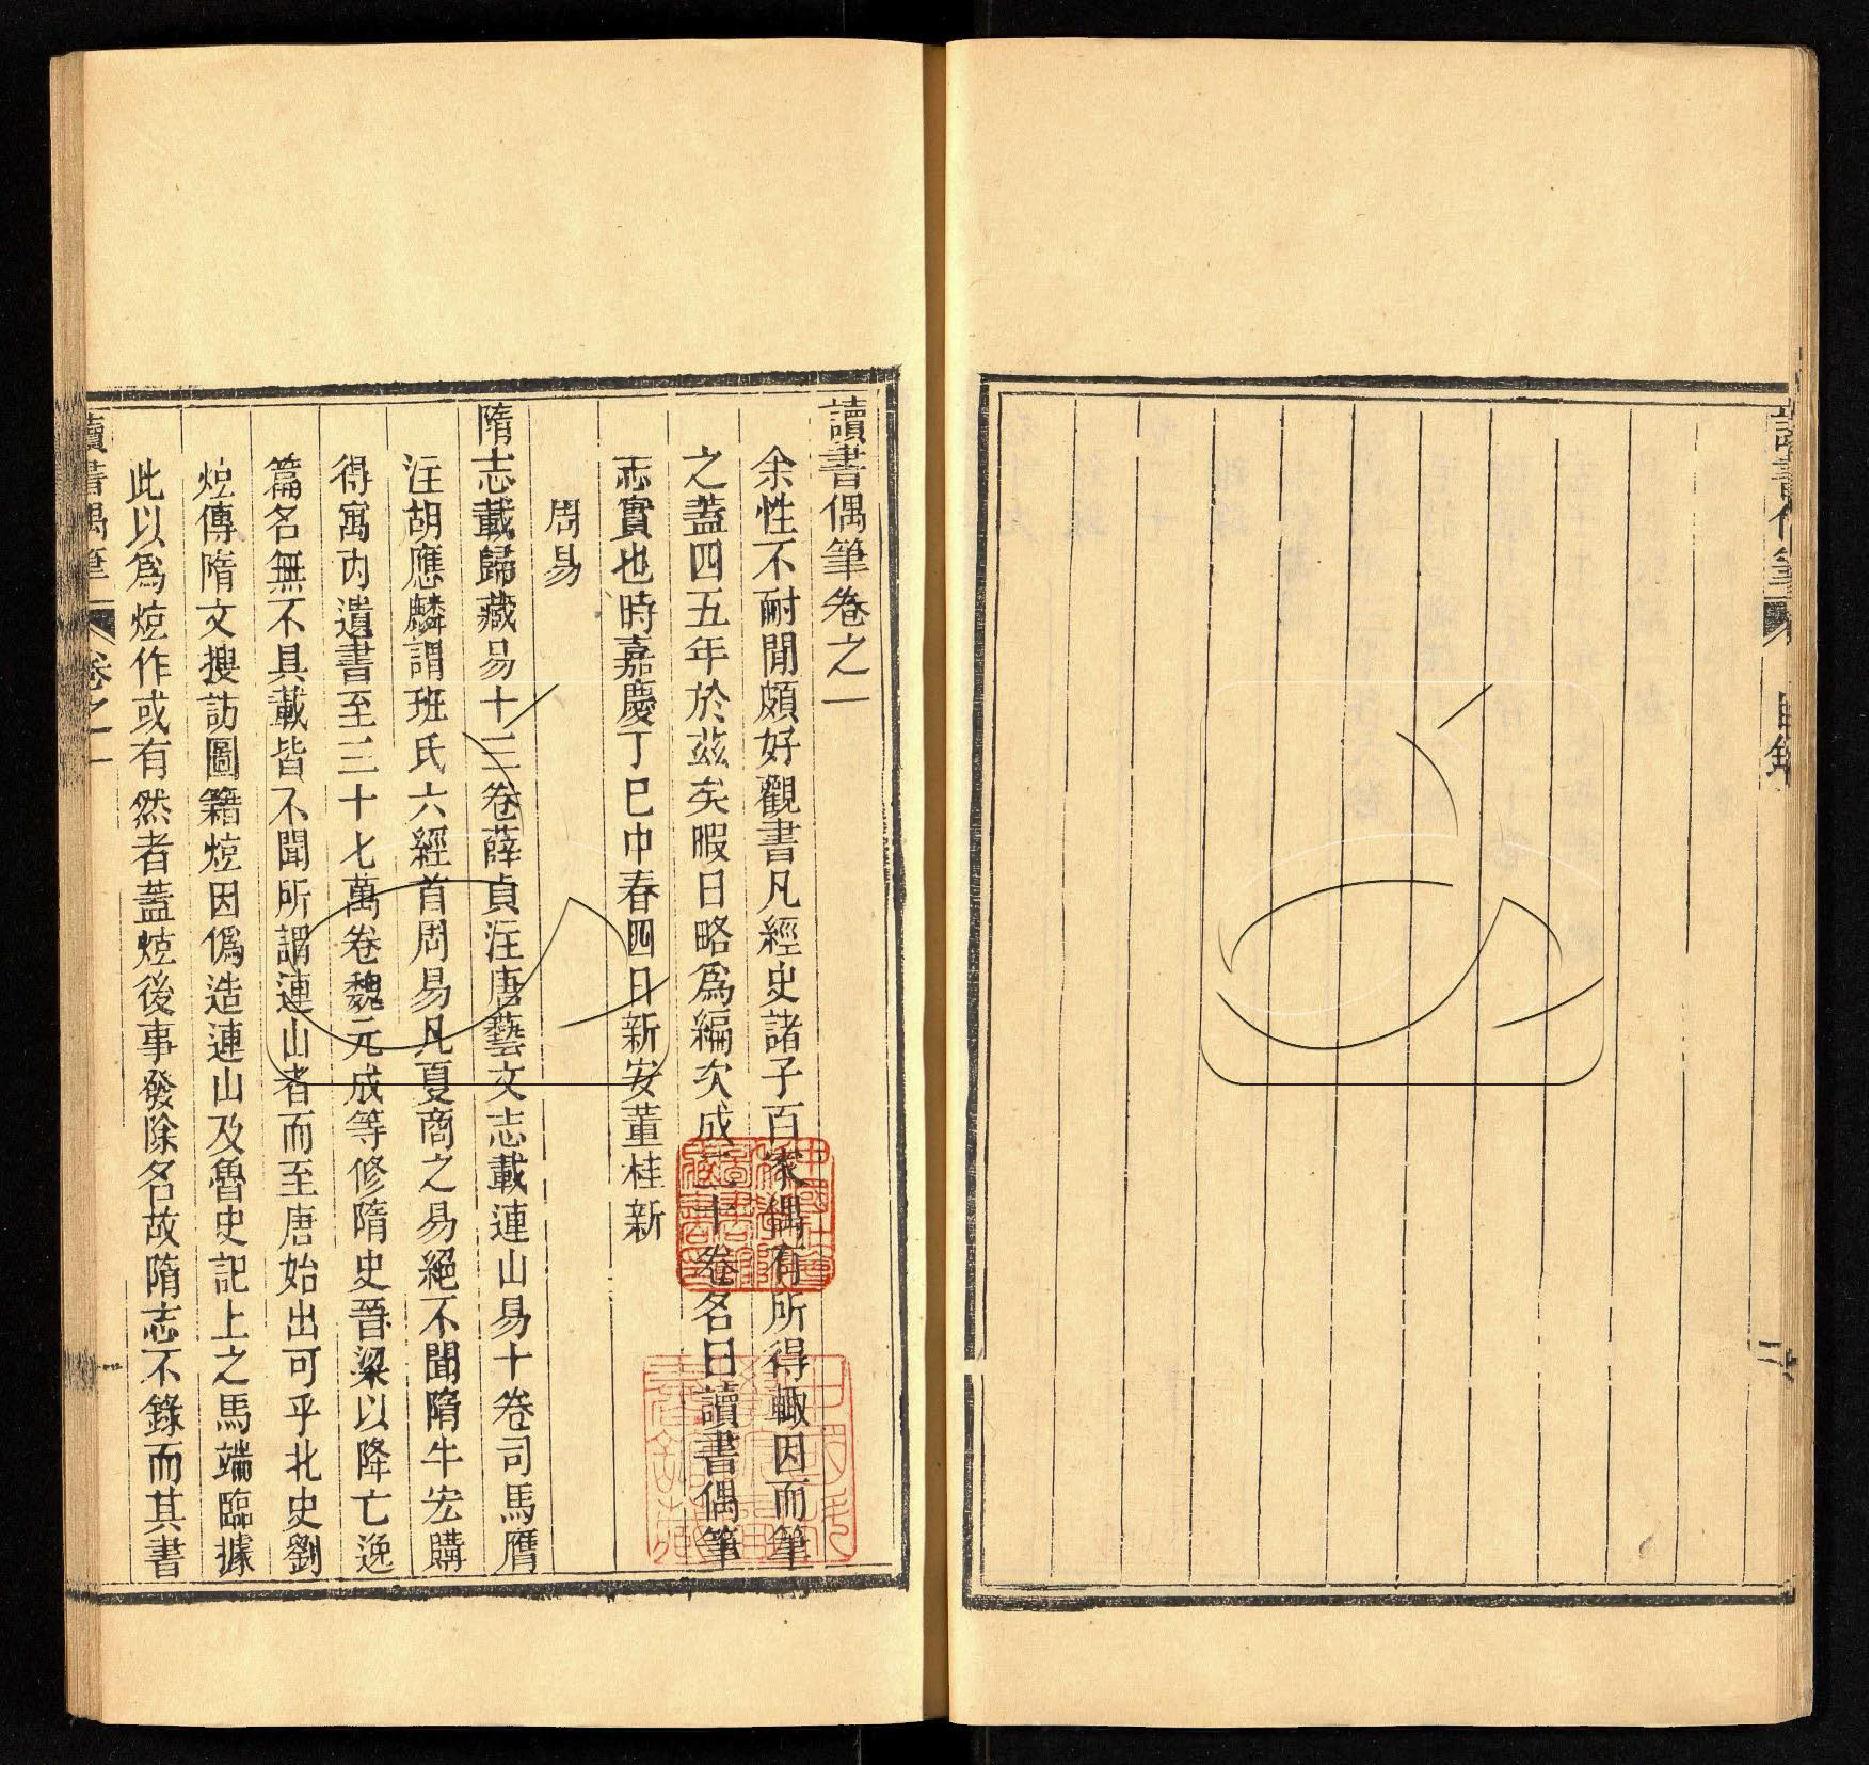 讀書偶筆卷之一
余性不耐閒頗好觀書凡經史諸子百家偶有所得輒因而筆
之蓋四五年於茲矣暇日略爲編次成二十卷名曰讀書偶筆
志實也時嘉慶丁巳中春四日新安董桂新
周易
隋志載歸藏易十三卷薛貞注唐藝文志載連山易十卷司馬膺
注胡應麟謂班氏六經首周易凡夏商之易絕不聞隋牛宏購
得寓內遺書至三十七萬卷魏元成等修隋史晉梁以降亡逸
篇名無不具載皆不聞所謂連山者而至唐始出可乎北史劉
炫傳隋文搜訪圖籍炫因僞造連山及魯史記上之馬端臨據
此以爲炫作或有然者蓋炫後事發除名故隋志不錄而其書
讀書偶筆 卷之一 一